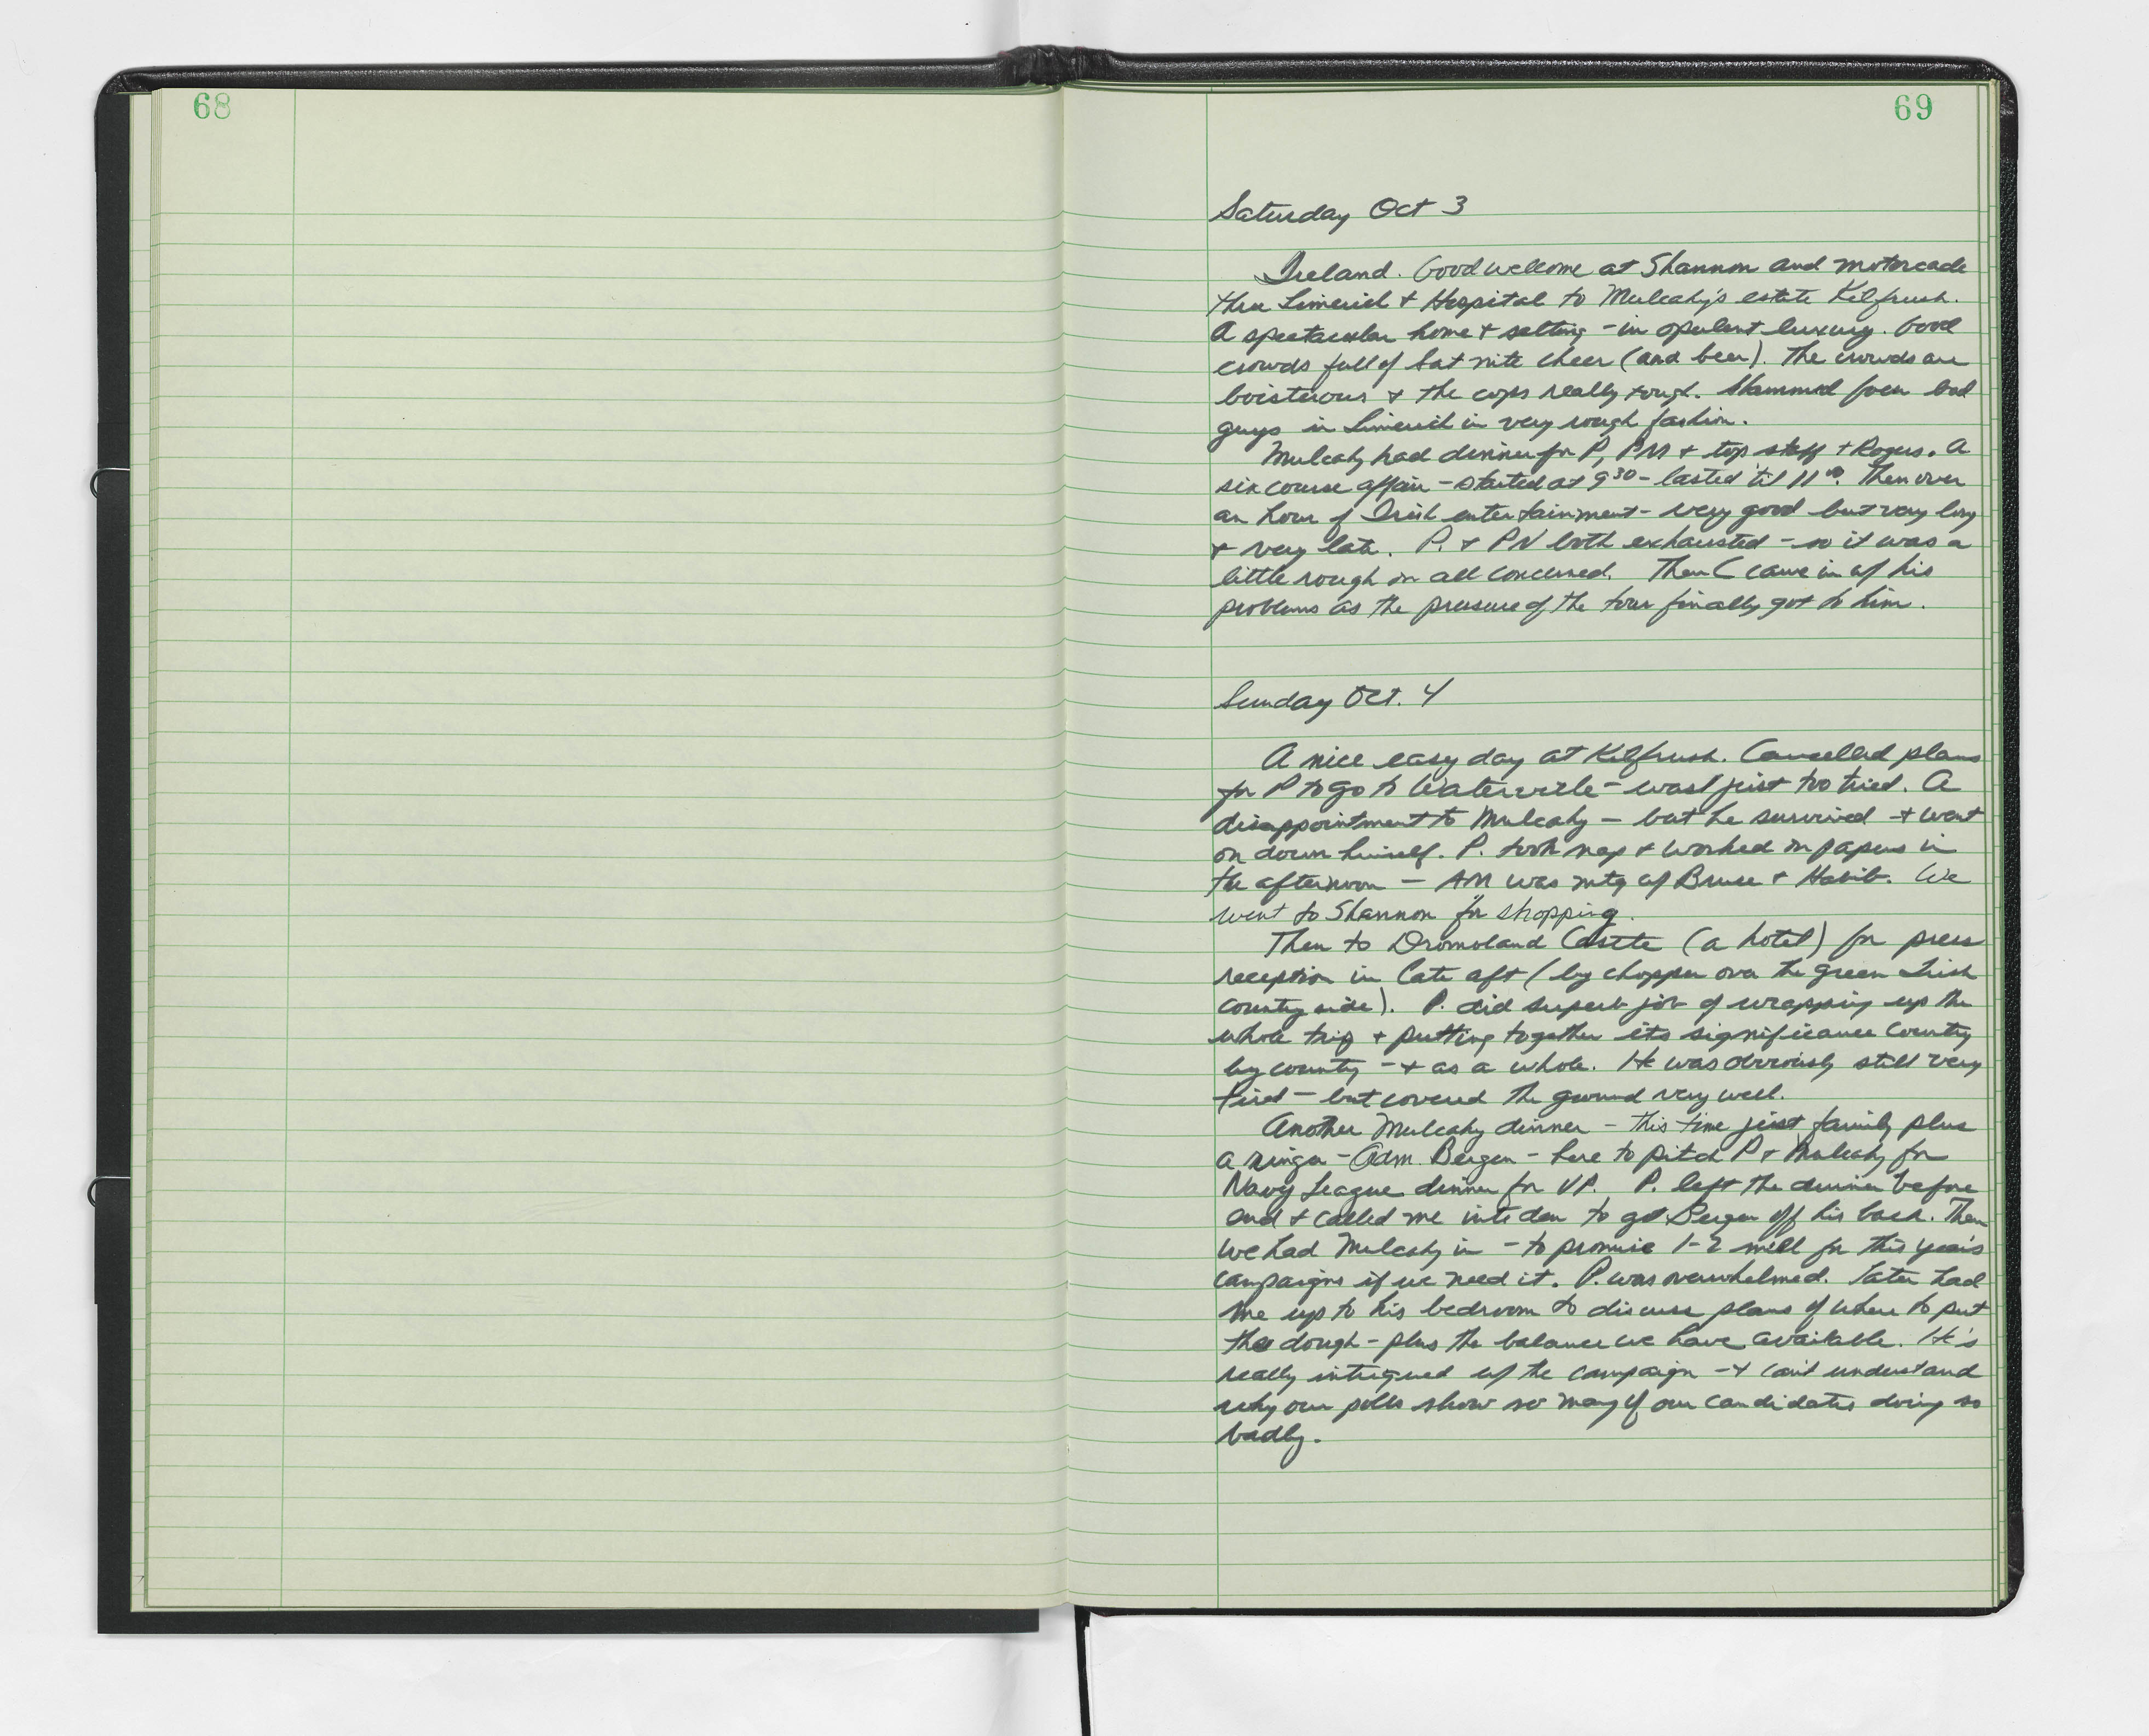 68
69
Saturday Oct 3
Ireland. Good welcome at Shannon and motorcade
thru Limerick + Hospital to Mulcahy's estate Kilfrush.
A spectacular home + setting - in opulent luxury. Good
crowds full of Sat nite cheer (and beer). The crowds are
boisterous + the cops really tough. Slammed few bad
guys in Limerick in very rough fashion.
Mulcahy had dinner for P, PM + top staff + Rogers. A
six course affair - started at 9³⁰ - lasted 'til 11⁰⁰. Then over
an hour of Irish entertainment - very good but very long
+ very late. P. + PN both exhausted - so it was a
little rough on all concerned. Then C came in w/ his
problems as the pressure of the tour finally got to him.
Sunday Oct. 4
A nice easy day at Kilfrush. Cancelled plans
for P to go to Waterville - was just too tired. A
disappointment to Mulcahy - but he survived + went
on down himself. P. took nap + worked on papers in
the afternoon - AM was mtg w/ Bruce + Habib. We
went to Shannon for shopping.
Then to Dromoland Castle (a hotel) for press
reception in late aft (by chopper over the green Irish
country side). P. did superb job of wrapping up the
whole trip + putting together its significance country
by country - + as a whole. He was obviously still very
tired - but covered the ground very well.
Another Mulcahy dinner - this time just family plus
a ringer - Adm. Bergen - here to pitch P + Mulcahy for
Navy League dinner for VP. P. left the dinner before
end + called me into den to get Bergen off his back. Then
we had Mulcahy in - to promise 1-2 mill for this year's
campaigns if we need it. P. was overwhelmed. Later had
me up to his bedroom to discuss plans of where to put
the dough - plus the balance we have available. He's
really intrigued w/ the campaign - + can't understand
why our polls show so many of our candidates doing so
badly.